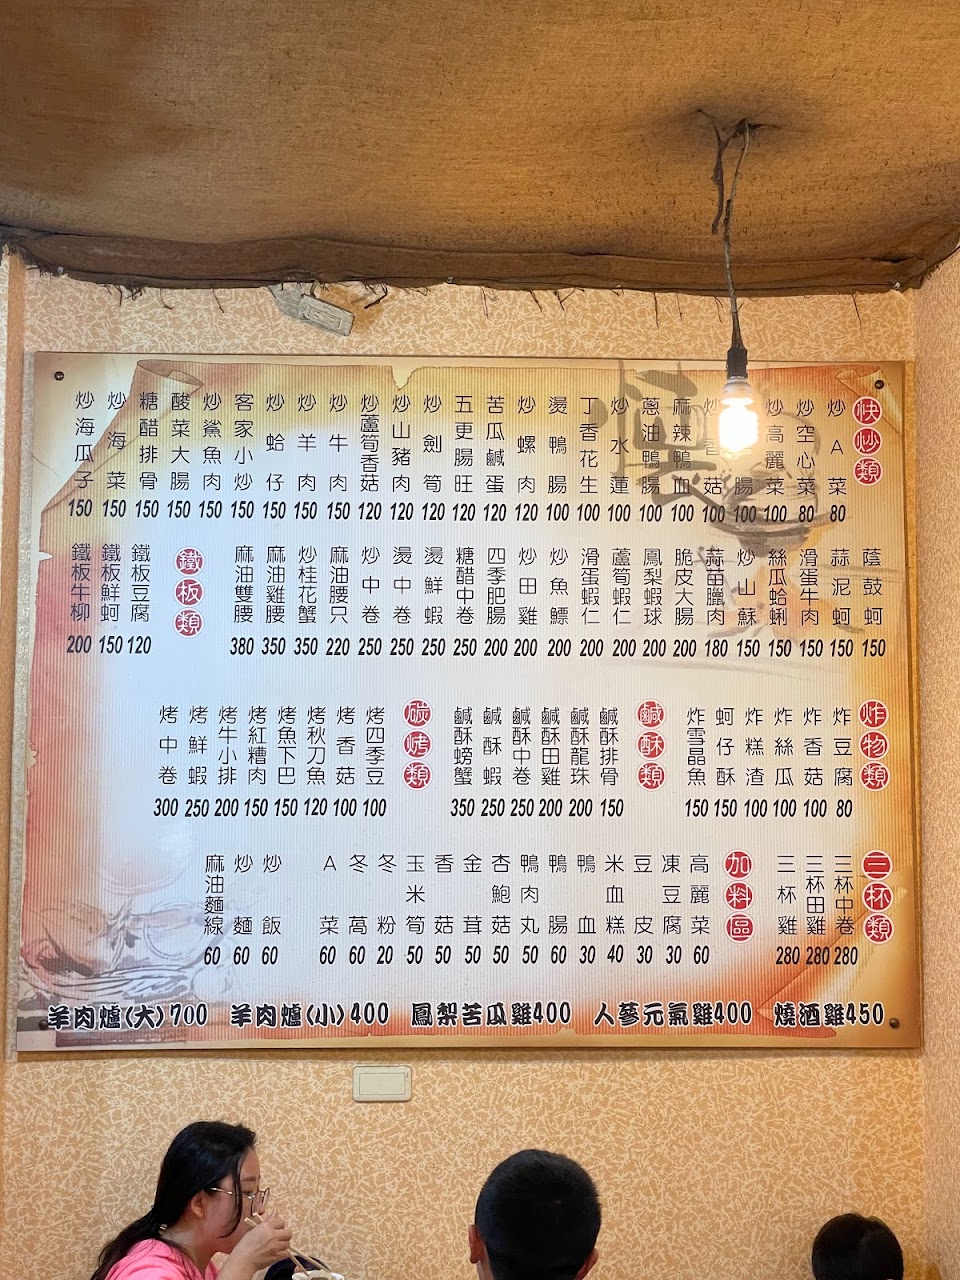 快炒類
炒A菜 80
炒空心菜 80
炒高麗菜 100
腸 100
炒香菇 100
麻辣鴨血 100
蔥油鴨腸 100
炒水蓮 100
丁香花生 100
燙鴨腸 100
炒螺肉 120
苦瓜鹹蛋 120
五更腸旺 120
炒劍筍 120
炒山豬肉 120
炒蘆筍香菇 120
炒牛肉 150
炒羊肉 150
炒蛤仔 150
客家小炒 150
炒鯊魚肉 150
酸菜大腸 150
糖醋排骨 150
炒海菜 150
炒海瓜子 150
蔭鼓蚵 150
蒜泥蚵 150
滑蛋牛肉 150
絲瓜蛤蜊 150
炒山蘇 150
蒜苗臘肉 180
脆皮大腸 200
鳳梨蝦球 200
蘆筍蝦仁 200
滑蛋蝦仁 200
炒魚鰾 200
炒田雞 200
四季肥腸 200
糖醋中卷 250
燙鮮蝦 250
燙中卷 250
炒中卷 250
麻油腰只 220
炒桂花蟹 350
麻油雞腰 350
麻油雙腰 380
鐵板類
鐵板豆腐 120
鐵板鮮蚵 150
鐵板牛柳 200
炸物類
炸豆腐 80
炸香菇 100
炸絲瓜 100
炸糕渣 100
蚵仔酥 150
炸雪晶魚 150
鹹酥類
鹹酥排骨 150
鹹酥龍珠 200
鹹酥田雞 200
鹹酥中卷 250
鹹酥蝦 250
鹹酥螃蟹 350
碳烤類
烤四季豆 100
烤香菇 100
烤秋刀魚 120
烤魚下巴 150
烤紅糟肉 150
烤牛小排 200
烤鮮蝦 250
烤中卷 300
三杯類
三杯中卷 280
三杯田雞 280
三杯雞 280
加料區
高麗菜 60
凍豆腐 30
豆皮 30
米血糕 40
鴨血 30
鴨腸 60
鴨肉丸 50
杏鮑菇 50
金茸 50
香菇 50
玉米筍 50
冬粉 20
冬蒿 60
A菜 60
炒飯 60
炒麵 60
麻油麵線 60
羊肉爐(大)700 羊肉爐(小)400 鳳梨苦瓜雞400 人蔘元氣雞400 燒酒雞450